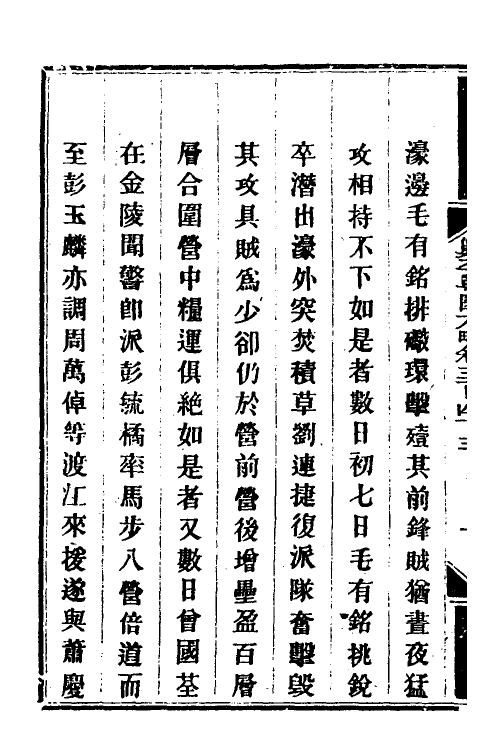 濠邊毛有銘排礮環擊殪其前鋒賊猶晝夜猛
攻相持不下如是者數日初七日毛有銘挑銳
卒潛出濠外突焚積草劉連捷復派隊奮擊毀
其攻具賊為少卻仍於營前營後增壘盈百層
層合圍營中糧運俱絕如是者又數日曾國荃
在金陵聞警卽派彭毓橘率馬步八營倍道而
至彭玉麟亦調周萬倬等渡江來援遂與蕭慶